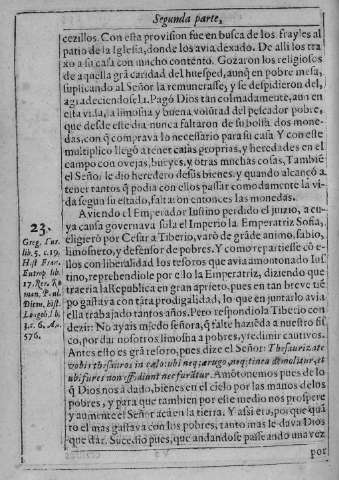 Segunda parte,
cezillos. Con esta provision fue en busca de los frayles al
patio de la Iglesia, donde los avia dexado. De alli los tra
xo a su casa con mucho contento. Gozaron los religiosos
de aquella grã caridad del huesped, aunq̃ en pobre mesa,
suplicando al Señor la remunerasse, y se despidieron del,
agradeciendosela. Pagò Dios tan colmadamente, aun en
esta vida, la limosna y buena voluntad del pescador pobre,
que desde este dia nunca faltaron de su bolsa dos mone-
das, con q̃ comprava lo necessario para su casa Y con este
multiplico llegò a tener casas proprias, y heredades en el
campo con ovejas, bueyes, y otras muchas cosas, Tambiẽ
el Señor le dio heredero de sus bienes. y quando alcançò a
tener tantos q̃ podia con ellos passar comodamente la vi-
da segun su estado, faltaron entonces las monedas.
Aviendo el Emperador Iustino perdido el juizio, a cu-
ya causa governava sola el Imperio la Emperatriz Sofia,
eligierõ por Cesar a Tiberio, varõ de grãde animo, sabio,
limosnero, y defensor de pobres. Y como repartiesse cõ e-
llos con liberalidad los tesoros que avia amontonado Ius
tino, reprehendiole por ello la Emperatriz, diziendo que
traeria la Republica en gran aprieto, pues en tan breve tiẽ
po gastava con tãta prodigalidad, lo que en juntarlo avia
ella trabajado tantos años. Pero respondiola Tiberio con
dezir: No ayais miedo señora, q̃ falte haziẽda a nuestro fis
co, por dar nosotros limosna a pobres, y redimir cautivos.
Antes esto es grã tesoro, pues dize el Señor: Thesaurizate
vobis thesauros in cælo: ubi neq; ærugo, neq; tinea demolitur, et
ubi fures non effodiunt nec furãtur. Amõtonemos pues de lo
q̃ Dios nos à dado, bienes en el cielo por las manos de los
pobres, y para que tambien por este medio nos prospere
y aumente el Señor acà en la tierra. Y assi era, porque quã
to el mas gastava con los pobres, tanto mas le dava Dios
que dar. Sucedio pues, que andandose passeando una vez
por
23.
Greg. Tur.
lib. 5. c. 19.
Hist. Fran.
Eutrop. lib.
17. Rer. Ro
man. P.
Diem. Hist.
Logob. lib.
3. c. 6. An.
576.